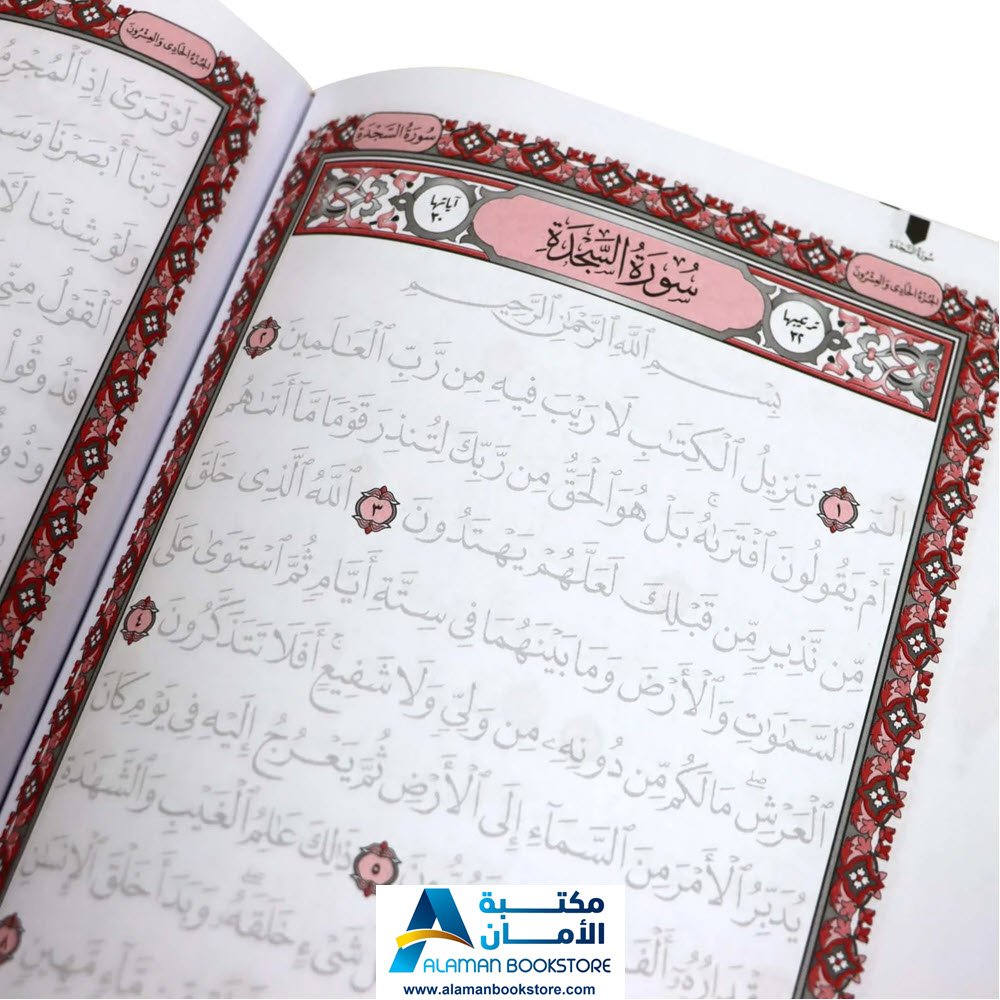 الجزء الحادي والعشرون
سورة السجدة
سُورَةُ السَّجْدَةِ
الجزء الحادي والعشرون
ترتيبها ٣٢
سُورَةُ السَّجْدَةِ
آياتها ٣٠
بِسْمِ ٱللَّهِ ٱلرَّحْمَٰنِ ٱلرَّحِيمِ
الٓمٓ ١ تَنزِيلُ ٱلْكِتَٰبِ لَا رَيْبَ فِيهِ مِن رَّبِّ ٱلْعَٰلَمِينَ ٢
أَمْ يَقُولُونَ ٱفْتَرَىٰهُ ۚ بَلْ هُوَ ٱلْحَقُّ مِن رَّبِّكَ لِتُنذِرَ قَوْمًا مَّآ أَتَىٰهُم
مِّن نَّذِيرٍ مِّن قَبْلِكَ لَعَلَّهُمْ يَهْتَدُونَ ٣ ٱللَّهُ ٱلَّذِى خَلَقَ
ٱلسَّمَٰوَٰتِ وَٱلْأَرْضَ وَمَا بَيْنَهُمَا فِى سِتَّةِ أَيَّامٍ ثُمَّ ٱسْتَوَىٰ عَلَى
ٱلْعَرْشِ ۖ مَا لَكُم مِّن دُونِهِۦ مِن وَلِىٍّ وَلَا شَفِيعٍ ۚ أَفَلَا تَتَذَكَّرُونَ ٤
يُدَبِّرُ ٱلْأَمْرَ مِنَ ٱلسَّمَآءِ إِلَى ٱلْأَرْضِ ثُمَّ يَعْرُجُ إِلَيْهِ فِى يَوْمٍ كَانَ
٥ ذَٰلِكَ عَٰلِمُ ٱلْغَيْبِ وَٱلشَّهَٰدَةِ
شَىْءٍ خَلَقَهُۥ ۖ وَبَدَأَ خَلْقَ ٱلْإِنسَٰنِ
مَّآءٍ مَّهِينٍ ٨
وَلَوْ تَرَىٰٓ إِذِ ٱلْمُجْرِمُ
رَبَّنَآ أَبْصَرْنَا وَسَ
وَلَوْ شِئْنَا لَأَ
ٱلْقَوْلُ مِنِّى
فَذُوقُوا۟
وَذُوقُ
مكتبة
الأمان
ALAMAN BOOKSTORE
www.alamanbookstore.com